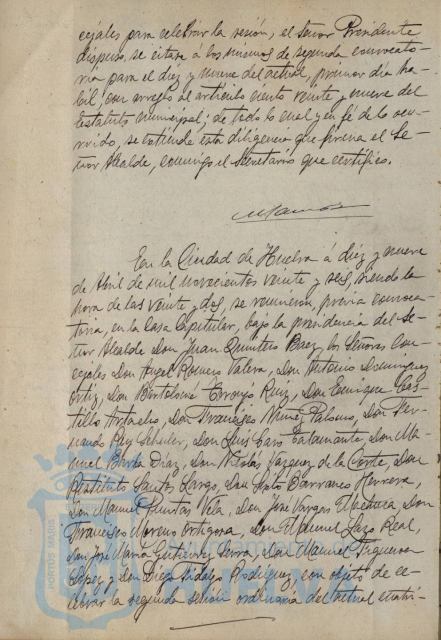 cejales para celebrar la sesión, el Señor Presidente
dispuso se citara á los mismos de segunda convocato-
ria para el diez y nueve del actual, primer día há-
bil, con arreglo al artículo ciento veinte y nueve del
Estatuto municipal; de todo lo cual y en fé de lo ocu-
rrido, se extiende esta diligencia que firma el Se-
ñor Alcalde, conmigo el Secretario que certifico.
En la Ciudad de Huelva á diez y nueve
de Abril de mil novecientos veinte y seis, siendo la
hora de las veinte y dos, se reunieron, previa convoca-
toria, en la Casa Capitular, bajo la presidencia del Se-
ñor Alcalde Don Juan Quintero Baez, los Señores Con-
cejales Don Angel Romero Talero, Don Antonio Dominguez
Ortiz, Don Bartolomé Ruiz, Don Enrique Cas-
tillo Don Francisco Muñoz Palomo, Don Fer-
nando Rey Don Luis Caro Don Ma-
nuel Díaz, Don Nicolás Vazquez de la Corte, Don
Restituto Santos Largo, Don Sixto Barranco Herrera,
Don Manuel Puntas Vela, Don José Vargas Don
Francisco Moreno Ortigosa, Don Manuel Lazo Real,
Don José María Gutierrez Serra, Don Manuel Figueroa
López y Don Diego Fidalgo Rodriguez, con objeto de ce-
lebrar la segunda sesión ordinaria del actual cuatri-
HORTUS MARIS